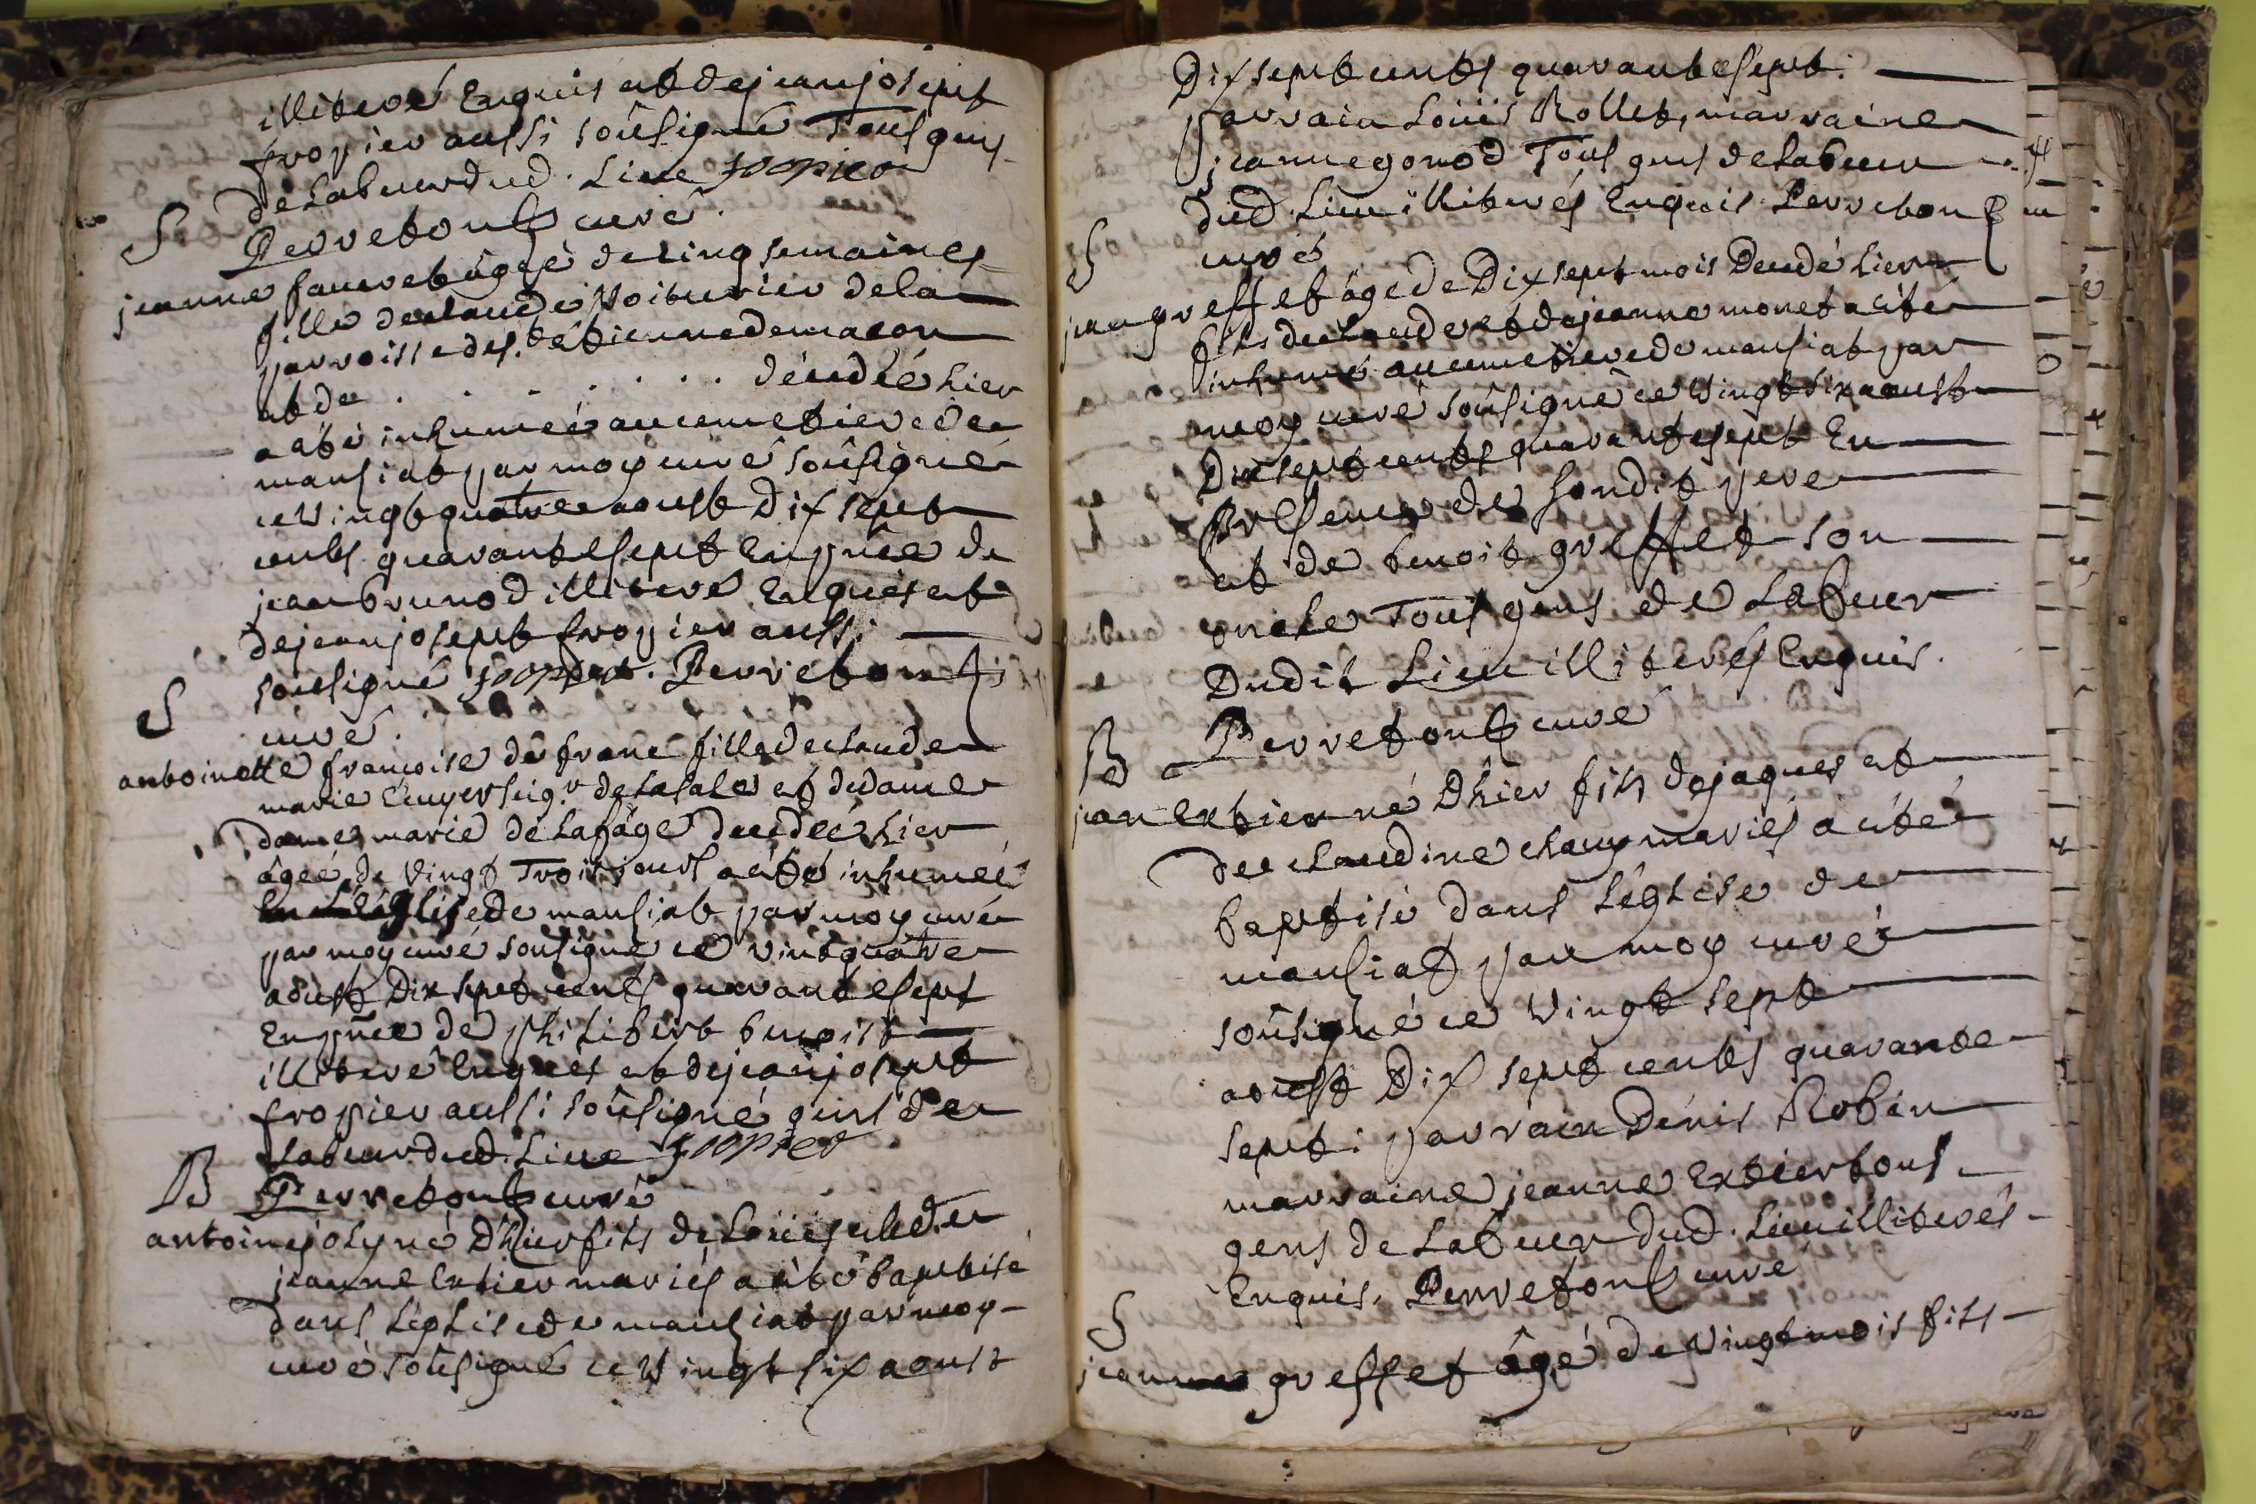 illiteré Enquis et de jean josept
fropier aussi soûsigné Tous gens
de Labeur dud. Lieu fropier
Perretont curé.
S
jeanne fauvet âgeé de cinq semaines
fille de claude Voiturier de la
parroisse de s.t étienne de macon
et de . . . . . . . décédeé hier
a été inhumeé au cemetiere de
mansiat par moy curé soûsigné
ce Vingt quatre aoust Dix sept
cents quarante sept En pñce de
jean brunod illiteré Enquis et
de jean josept fropier aussi
sousigné fropier. Perreton
curé.
S
antoinette françoise de franc fille de claude
marie Ecuyer seig.r de la sale et de dame
dame marie de la fâge decedeé hier
âgeé de Vingt Trois jours a été inhumeé
En L'église de mansiat par moy curé
par moy curé sousigné ce vint quatre
aoust Dix sept cents quarante sept
En pñce de philibert benoist
illiteré Enquis et de jean josept
fropier aussi soûsigné gens de
Labeur dud. Lieu fropier
Perretont curé
B
antoine joly né D'hier fils de Loüis et de
jeanne Extier mariés a été baptisé
dans L'églisede mansiat par moy
curé soûsigné ce Vingt six aoust
Dix sept cents quarante sept.
parrain Loüis Rollet, marraine
jeanne gonod Tous gens de Labeur
dud. Lieu illiterés Enquis Perreton
curé
S
jean greffet âge de Dix sept mois Decedé hier
fils de claude et de jeanne monet a été
inhumé au cemetiere de mansiat par
moy curé soûsigné ce Vingt six aoust
Dix sept cents quarante sept En
Presence de son dit pere
et de benoit greffet son
oncle Tous gens de Labeur
Dudit Lieu illiterés Enquis.
Perretont curé
B
jean Extier né D'hier fils de jaques et
de claudine chany mariés a été
baptisé dans L'église de
mansiat par moy curé
soûsigné ce Vingt sept
aoust Dix sept cents quarante
sept: parrain Denis Robin
marraine jeanne Extier tous
gens de Labeur dud. Lieu illiterés
Enquis. Perretont curé
S
jean greffet âgé de Vingt mois fils